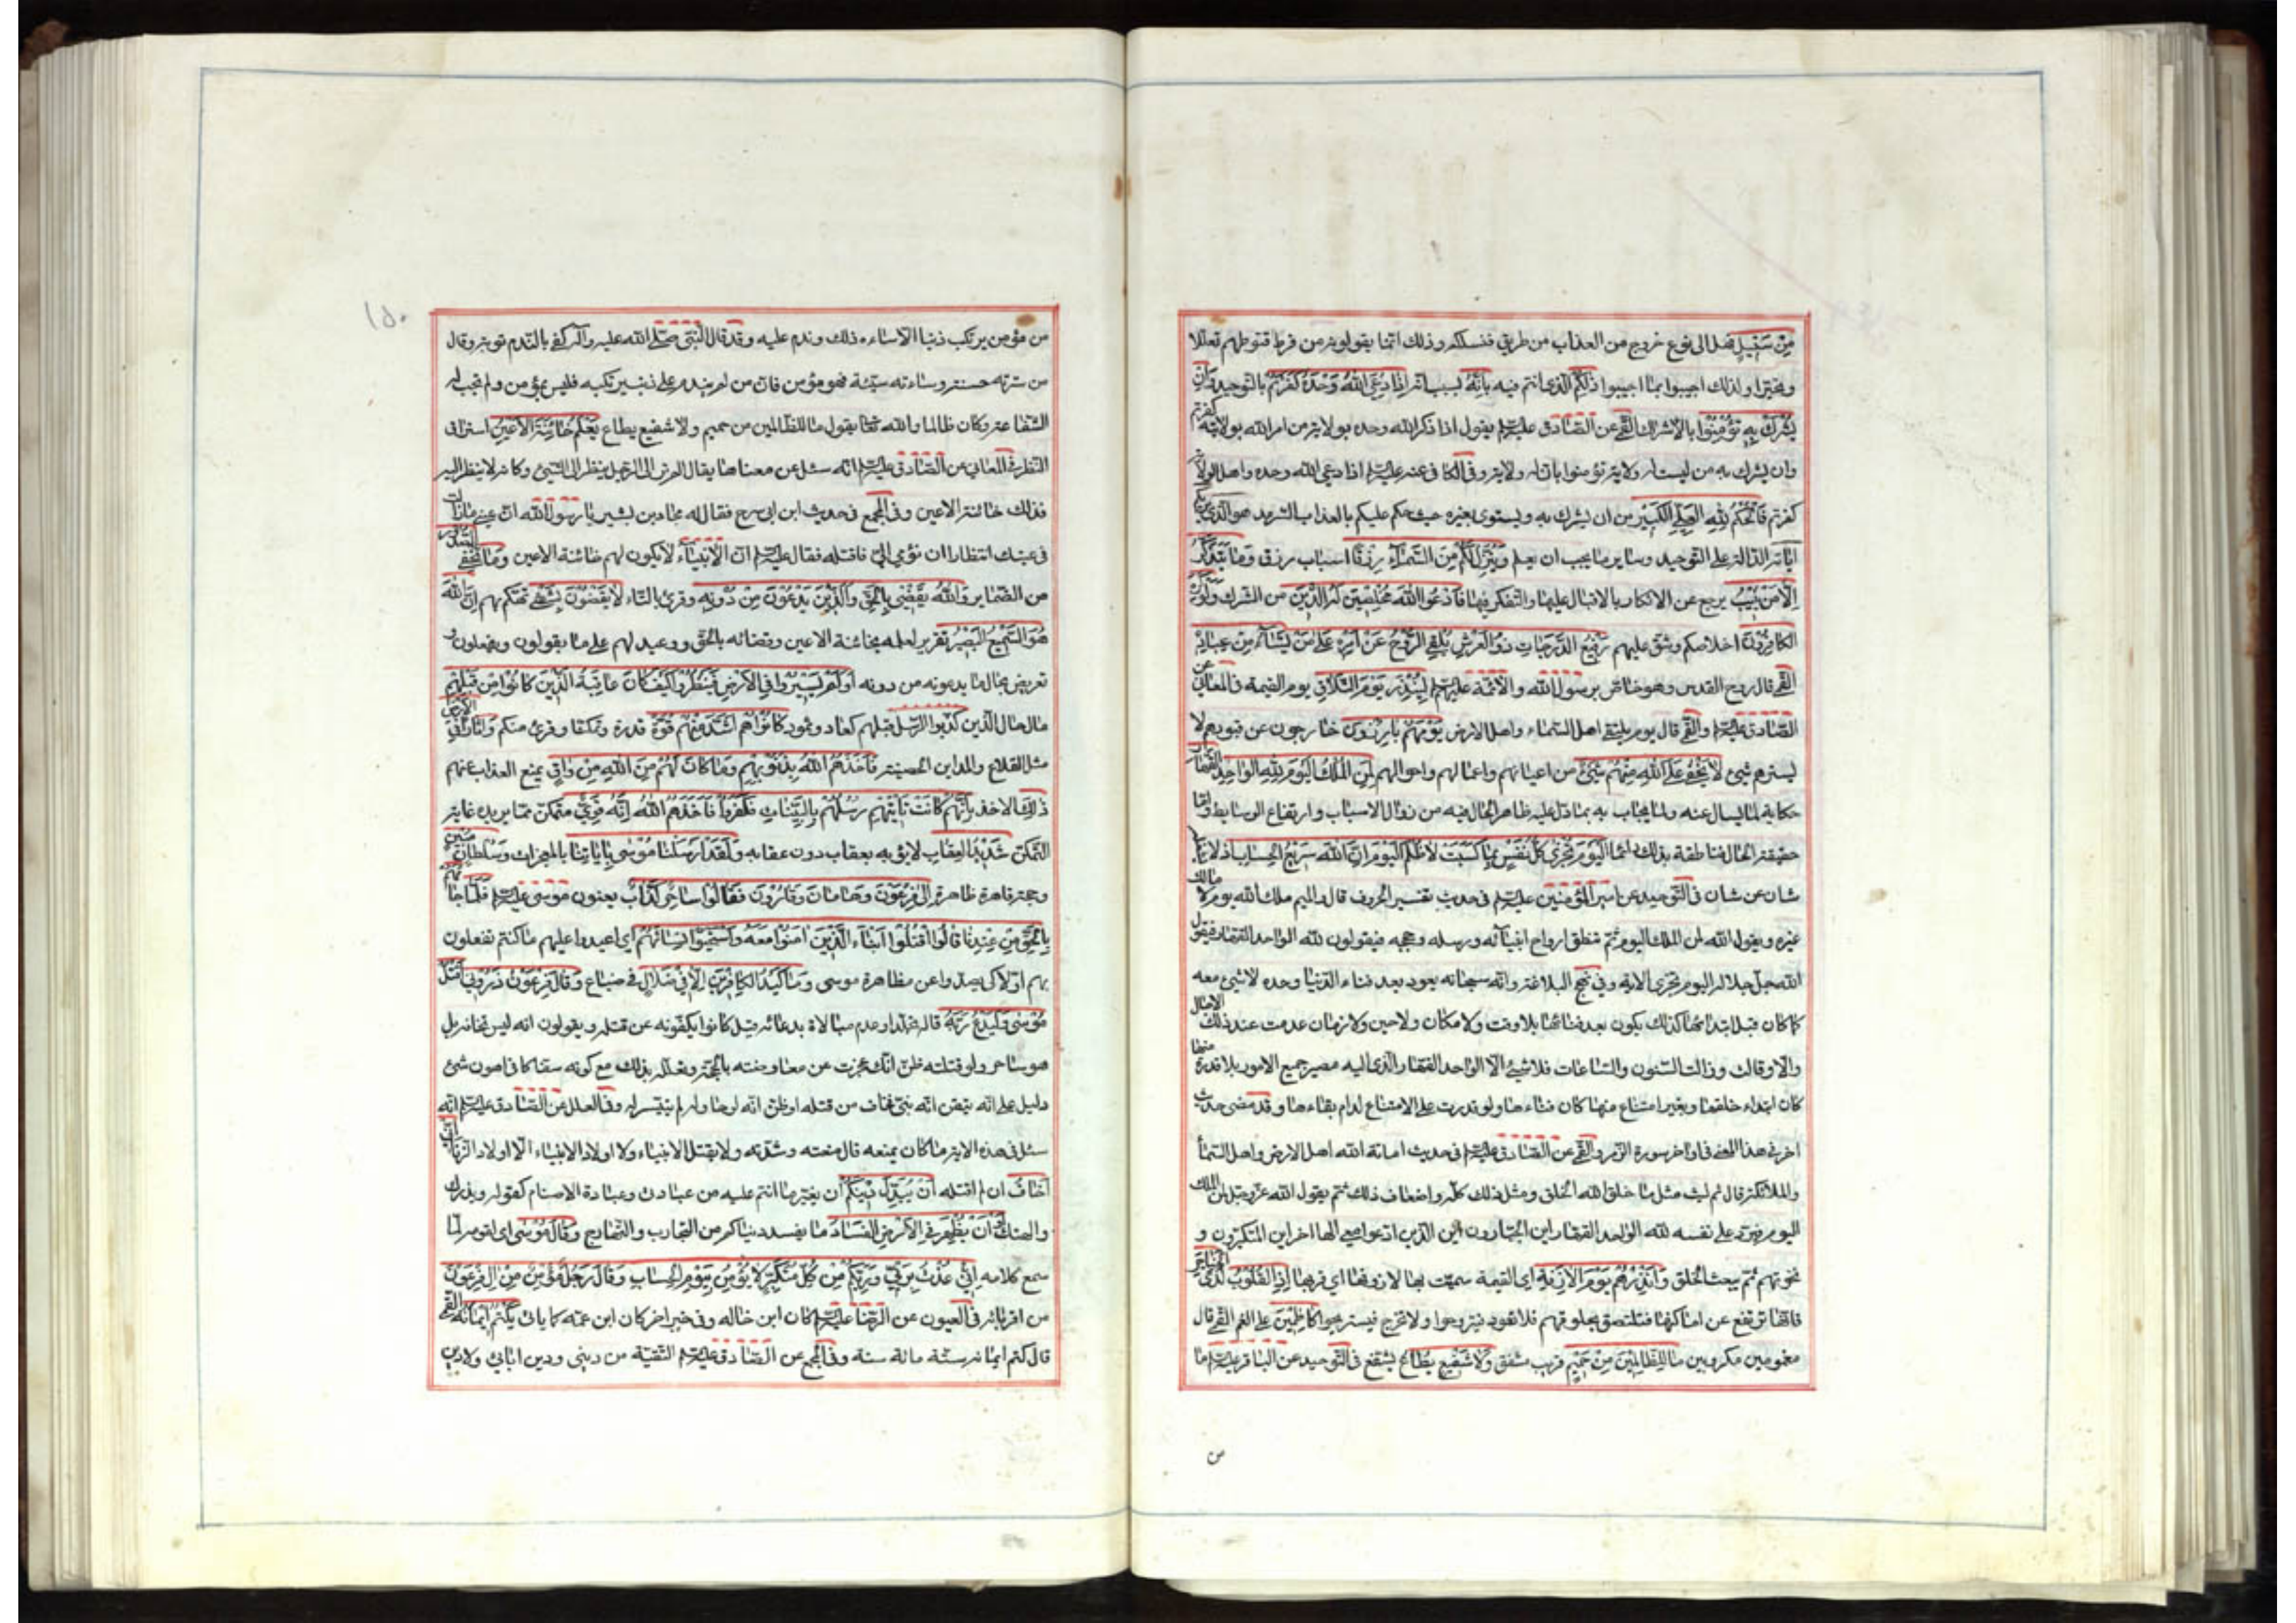 مِنْ سَبِيلٍ فهل الى نوع خروج من العذاب من طريق فنسلكه وذلك انما يقولونه من فرط قنوطهم تعللا
وتحيرا ولذلك اجيبوا بما اجيبوا ذٰلِكُمْ الذي انتم فيه بِاَنَّهُ بسبب انه اِذا دُعِيَ اللهُ وَحْدَهُ كَفَرْتُمْ بالتوحيد وَاِنْ
يُشْرَكْ بِهِ تُؤْمِنُوا بالاشراك القمي عن الصادق عليه السلم يقول اذا ذكر الله وحده بولاية من امر الله بولايته كفرتم
وان يشرك به من ليست له ولاية تؤمنوا بان له ولاية وفي الكافي عنه عليه السلم اذا دعي الله وحده واهل الولاية
كفرتم فَالْحُكْمُ لِلّٰهِ الْعَلِيِّ الْكَبِيرِ من ان يشرك به ويستوى بغيره حيث حكم عليكم بالعذاب السرمد هُوَ الَّذِي يُرِيكُمْ
اٰيَاتِهِ الدالة على التوحيد وساير ما يجب ان يعلم وَيُنَزِّلُ لَكُمْ مِنَ السَّمَاءِ رِزْقًا اسباب رزق وَمَا يَتَذَكَّرُ
اِلَّا مَنْ يُنِيبُ يرجع عن الانكار بالاقبال عليها والتفكر فيها فَادْعُوا اللهَ مُخْلِصِينَ لَهُ الدِّينَ من الشرك وَلَوْ كَرِهَ
الْكَافِرُونَ اخلاصكم وشق عليهم رَفِيعُ الدَّرَجَاتِ ذُو الْعَرْشِ يُلْقِي الرُّوحَ مِنْ اَمْرِهِ عَلٰى مَنْ يَشَاءُ مِنْ عِبَادِهِ
القمي قال روح القدس وهو خاص برسول الله والائمة عليهم السلم لِيُنْذِرَ يَوْمَ التَّلَاقِ يوم القيمة في المعاني عن
الصادق عليه السلم والقمي قال يوم يلتقي اهل السماء واهل الارض يَوْمَ هُمْ بَارِزُونَ خارجون عن قبورهم لا
يسترهم شيء لَا يَخْفٰى عَلَى اللهِ مِنْهُمْ شَيْءٌ من اعيانهم واعمالهم واحوالهم لِمَنِ الْمُلْكُ الْيَوْمَ لِلّٰهِ الْوَاحِدِ الْقَهَّارِ
حكاية لما يسال عنه ولما يجاب به بما دل عليه ظاهر الحال فيه من زوال الاسباب وارتفاع الوسايط واما
حقيقة الحال فناطقة بذلك دائما اَلْيَوْمَ تُجْزٰى كُلُّ نَفْسٍ بِمَا كَسَبَتْ لَا ظُلْمَ الْيَوْمَ اِنَّ اللهَ سَرِيعُ الْحِسَابِ اذ لا يشغله
شان عن شان في التوحيد عن امير المؤمنين عليه السلم في حديث تفسير الحروف قال والميم ملك الله يوم لا مالك
غيره ويقول الله لمن الملك اليوم ثم تنطق ارواح انبيائه ورسله وحججه فيقولون لله الواحد القهار فيقول
الله جل جلاله اليوم تجزى الاية وفي نهج البلاغة وانه سبحانه يعود بعد فناء الدنيا وحده لا شيء معه
كما كان قبل ابتدائها كذلك يكون بعد فنائها بلا وقت ولا مكان ولا حين ولا زمان عدمت عند ذلك الاجال
والاوقات وزالت السنون والساعات فلا شيء الا الواحد القهار الذي اليه مصير جميع الامور بلا قدرة منها
كان ابتداء خلقها وبغير امتناع منها كان فناءها ولو قدرت على الامتناع لدام بقاءها وقد مضى حديث
اخر في هذا المعنى في اواخر سورة الزمر والقمي عن الصادق عليه السلم في حديث اماتة الله اهل الارض واهل السماء
والملائكة قال ثم لبث مثل ما خلق الله الخلق ومثل ذلك كله واضعاف ذلك ثم يقول الله عز وجل لمن الملك
اليوم فيرد على نفسه لله الواحد القهار اين الجبارون اين الذين ادعوا معي الها اخر اين المتكبرون و
نخوتهم ثم يبعث الخلق وَاَنْذِرْهُمْ يَوْمَ الْاٰزِفَةِ اي القيمة سميت بها لازوفها اي قربها اِذِ الْقُلُوبُ لَدَى الْحَنَاجِرِ
فانها ترتفع عن اماكنها فتلتصق بحلوقهم فلا تعود فيتروحوا ولا تخرج فيستريحوا كَاظِمِينَ على الغم القمي قال
مغمومين مكروبين مَا لِلظَّالِمِينَ مِنْ حَمِيمٍ قريب مشفق وَلَا شَفِيعٍ يُطَاعُ يشفع في التوحيد عن الباقر عليه السلم ما
من
١٥٠
من مؤمن يرتكب ذنبا الا ساءه ذلك وندم عليه وقد قال النبي صلى الله عليه وآله كفى بالندم توبة وقال
من سرته حسنة وساءته سيئة فهو مؤمن فان من لم يندم على ذنب يرتكبه فليس بمؤمن ولم تجب له
الشفاعة وكان ظالما والله تعالى يقول ما للظالمين من حميم ولا شفيع يطاع يَعْلَمُ خَائِنَةَ الْاَعْيُنِ استراق
النظر في المعاني عن الصادق عليه السلم انه سئل عن معناها فقال الم تر الى الرجل ينظر الى الشيء وكانه لا ينظر اليه
فذلك خائنة الاعين وفي المجمع في حديث ابن ابي سرح فقال له عباد بن بشير يا رسول الله ان عيني ما زالت
في عينك انتظارا ان تومي الي فاقتله فقال عليه السلم ان الانبياء لا يكون لهم خائنة الاعين وَمَا تُخْفِي الصُّدُورُ
من الضماير وَاللهُ يَقْضِي بِالْحَقِّ وَالَّذِينَ يَدْعُونَ مِنْ دُونِهِ وقرئ بالتاء لَا يَقْضُونَ بِشَيْءٍ تهكم بهم اِنَّ اللهَ
هُوَ السَّمِيعُ الْبَصِيرُ تقرير لعلمه بخائنة الاعين وقضائه بالحق ووعيد لهم على ما يقولون ويفعلون و
تعريض بحال ما يدعونه من دونه اَوَلَمْ يَسِيرُوا فِي الْاَرْضِ فَيَنْظُرُوا كَيْفَ كَانَ عَاقِبَةُ الَّذِينَ كَانُوا مِنْ قَبْلِهِمْ
مال حال الذين كذبوا الرسل قبلهم كعاد وثمود كَانُوا هُمْ اَشَدَّ مِنْهُمْ قُوَّةً قدرة وتمكنا وقرئ منكم وَاٰثَارًا فِي الْاَرْضِ
مثل القلاع والمداين الحصينة فَاَخَذَهُمُ اللهُ بِذُنُوبِهِمْ وَمَا كَانَ لَهُمْ مِنَ اللهِ مِنْ وَاقٍ يمنع العذاب عنهم
ذٰلِكَ الاخذ بِاَنَّهُمْ كَانَتْ تَأْتِيهِمْ رُسُلُهُمْ بِالْبَيِّنَاتِ فَكَفَرُوا فَاَخَذَهُمُ اللهُ اِنَّهُ قَوِيٌّ متمكن مما يريده غاية
التمكن شَدِيدُ الْعِقَابِ لا يؤبه بعقاب دون عقابه وَلَقَدْ اَرْسَلْنَا مُوسٰى بِاٰيَاتِنَا بالمعجزات وَسُلْطَانٍ مُبِينٍ
وحجة قاهرة ظاهرة اِلٰى فِرْعَوْنَ وَهَامَانَ وَقَارُونَ فَقَالُوا سَاحِرٌ كَذَّابٌ يعنون موسى عليه السلم فَلَمَّا جَاءَهُمْ
بِالْحَقِّ مِنْ عِنْدِنَا قَالُوا اقْتُلُوا اَبْنَاءَ الَّذِينَ اٰمَنُوا مَعَهُ وَاسْتَحْيُوا نِسَائَهُمْ اي اعيدوا عليهم ما كنتم تفعلون
بهم اولا كي يصدوا عن مظاهرة موسى وَمَا كَيْدُ الْكَافِرِينَ اِلَّا فِي ضَلَالٍ في ضياع وَقَالَ فِرْعَوْنُ ذَرُونِي اَقْتُلْ
مُوسٰى وَلْيَدْعُ رَبَّهُ قاله تجلدا وعدم مبالاة بدعائه قيل كانوا يكفونه عن قتله ويقولون انه ليس تخافه بل
هو ساحر ولو قتلته ظن انك عجزت عن معارضته بالحجة وتعلله بذلك مع كونه سفاكا في اهون شيء
دليل على انه تيقن انه نبي فخاف من قتله او ظن انه لو حاوله لم يتيسر له وفي العلل عن الصادق عليه السلم انه
سئل في هذه الاية ما كان يمنعه قال منعته رشدته ولا يقتل الانبياء ولا اولاد الانبياء الا اولاد الزنا اِنِّي
اَخَافُ ان لم اقتله اَنْ يُبَدِّلَ دِينَكُمْ ان يغير ما انتم عليه من عبادتي وعبادة الاصنام كقوله ويذرك
والهتك اَوْ اَنْ يُظْهِرَ فِي الْاَرْضِ الْفَسَادَ ما يفسد دنياكم من التحارب والتهارج وَقَالَ مُوسٰى اي لقومه لما
سمع كلامه اِنِّي عُذْتُ بِرَبِّي وَرَبِّكُمْ مِنْ كُلِّ مُتَكَبِّرٍ لَا يُؤْمِنُ بِيَوْمِ الْحِسَابِ وَقَالَ رَجُلٌ مُؤْمِنٌ مِنْ اٰلِ فِرْعَوْنَ
من اقربائه في العيون عن الرضا عليه السلم كان ابن خاله وفي خبر اخر كان ابن عمه كما ياتي يَكْتُمُ اِيمَانَهُ القمي
قال كتم ايمانه ستمائة سنة وفي المجمع عن الصادق عليه السلم التقية من ديني ودين ابائي ولا دين